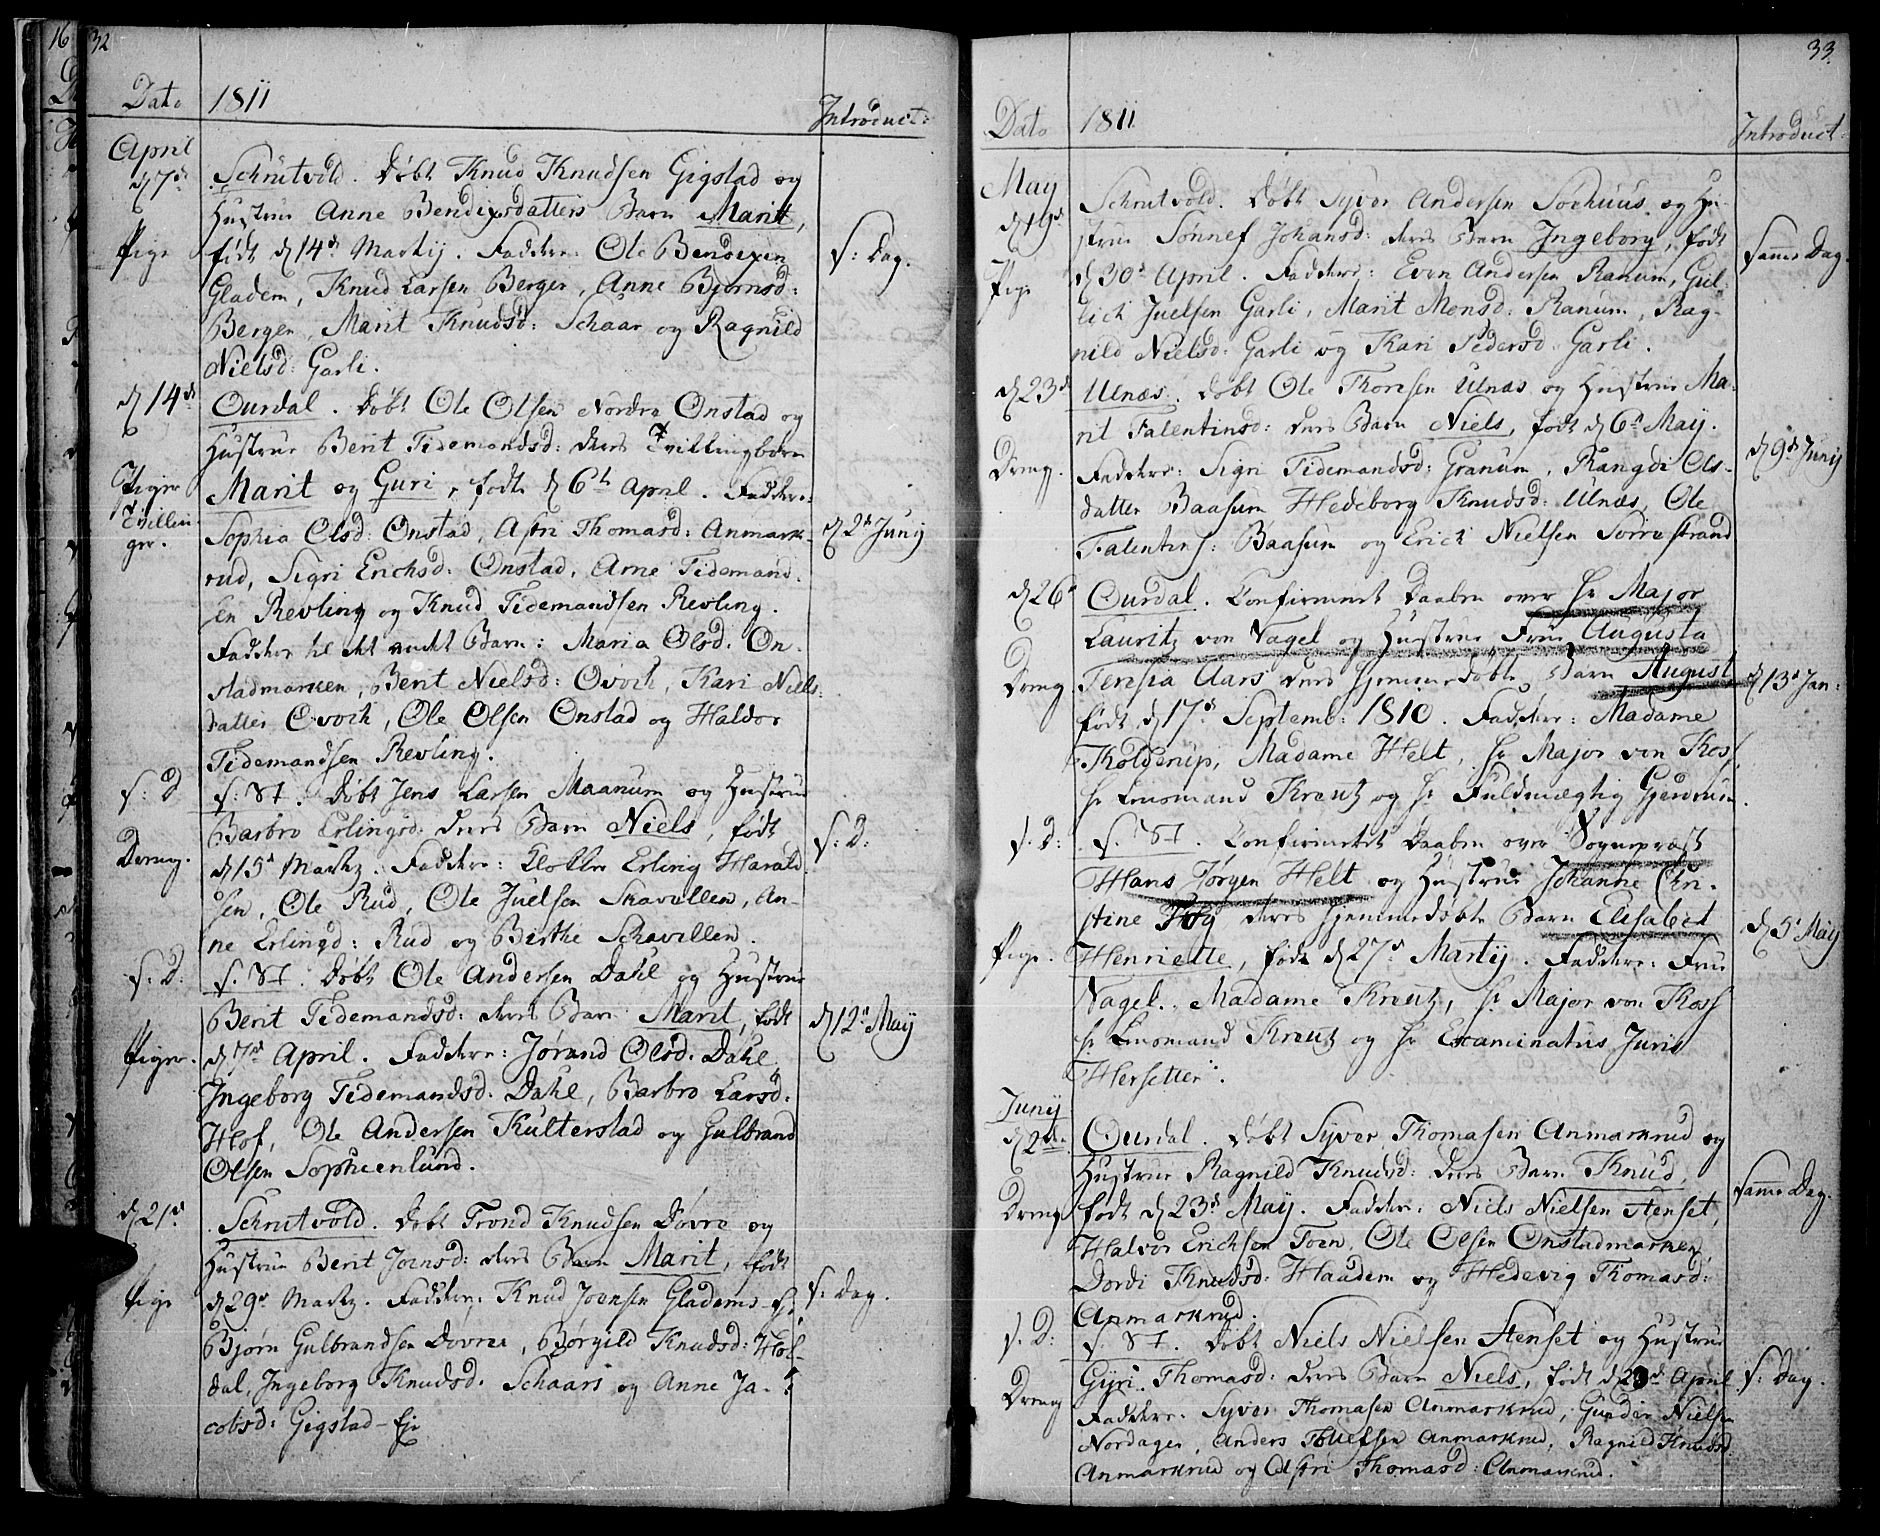 16
32
Dato 1811 Introduct:
April
d 7de Schrutvold. Døbt Knud Knudsen Gigstad og
Hustrue Anne Bendixsdatters Barn Marit,
Pige født d 14de Martij. Faddere: Ole Bendixen S: Dag.
Gladem, Knud Larsen Bergen, Anne Bjørnsd:
Bergen, Marit Knudsd: Schaar og Ragnild
Nielsd: Garli.
d 14de Ourdal. Døbt Ole Olsen Nordre Onstad og
Hustrue Berit Tidemandsd: deres Tvillingbørn
Piger Marit og Guri, fødte d 6te April. Faddere:
Tvillin- Sophia Olsd: Onstad, Astri Thomasd: Anmark- d 2de Junij
ger. rud, Sigri Erichsd: Onstad, Arne Tidemand-
sen Revling og Knud Tidemandsen Revling.
Faddere til det andet Barn: Maria Olsd: On-
stadmarken, Berit Nielsd: Qvoch, Kari Niels-
datter Qvoch, Ole Olsen Onstad og Haldor
Tidemandsen Revling.
S: D S: St. Døbt Jens Larsen Maanum og Hustrue
Barbro Erlingsd: deres Barn Niels, født S: D:
Dreng. d 15de Martz. Faddere: Klokker Erling Harald-
sen, Ole Rud, Ole Juelsen Skavellen, An-
ne Erlingd: Rud og Berthe Schavellen.
S: D: S: St. Døbt Ole Andersen Dahl og Hustrue
Berit Tidemandsd: deres Barn Marit, født d 12te May
Piger. d 7de April. Faddere: Jørand Olsd: Dahl,
Ingeborg Tidemandsd. Dahl, Barbro Larsd:
Hof, Ole Andersen Kulterstad og Gulbrand
Olsen Sopheenlund.
d 21de Schrutvold. Døbt Trond Knudsen Døvre og
Hustrue Berit Joensd: deres Barn Marit, født
Pige d 29de Martz. Faddere: Knud Joensen Gladems-Ej, S: Dag.
Bjørn Gulbrandsen Døvree, Børgild Knudsd: Høl-
dal, Ingeborg Knudsd. Schaars og Anne Ja-
cobsd: Gigstad-Eje
33.
Dato 1811 Introduct:
May
d 19de Schrutvold. Døbt Syver Andersen Søehuus og Hu-
strue Sønnef Johansd: deres Barn Ingeborg, født Samme Dag.
Pige d 30de April. Faddere: Even Andersen Ranum, Gul-
lich Juelsen Garli, Marit Monsd: Ranum, Rag-
nild Nielsd: Garli og Kari Pedersd: Garli.
d 23de Ulnæs. Døbt Ole Thoresen Ulnæs og Hustrue Ma-
rit Falentinsd: deres Barn Niels, født d 6te May.
Dreng. Faddere: Sigri Tidemandsd: Granum, Rangdi Ols- d 9de Junij
datter Baasum, Hedeborg Knudsd: Ulnæs, Ole
Falentins: Baasum og Erich Nielsen Sørrestrand
d 26de Ourdal. Confirmeret Daaben over Hr Major
Lauritz von Nagel og Hustrue Frue Augusta
Dreng Teresia Aars deres hjemmedøbte Barn August d 13de Jan:
født d 17de Septemb: 1810. Faddere: Madame
Kolderup, Madame Helt, Hr Major von Koss,
Hr Lensmand Kreutz og Hr Fuldmægtig Gjerdrum.
S. D: S. St. Confirmeret Daaben over Sognepræst
Hans Jørgen Helt og Hustrue Johanne Chri-
stine Høg deres hjemmedøbte Barn Elisabet d 5te May
Pige. Henriette, født d 27de Martij. Faddere: Frue
Nagel. Madame Kreutz, Hr Major von Koss
Hr Lensmand Kreutz og Hr Examinatus Juris
Hersetter.
Junij
d 2de Ourdal. Døbt Syver Thomasen Anmarkrud og
Hustrue Ragnild Knudsd: deres Barn Knud, Samme Dag.
Dreng født d 23de May. Faddere: Niels Nielsen Stenset,
Halvor Erichsen Foen, Ole Olsen Onstadmarken,
Dordi Knudsd: Haadem og Hedevig Thomasd:
Anmarkrud.
S. D: S. St. Døbt Niels Nielsen Stenset og Hustrue
Dreng Gjri Thomasd: deres Barn Niels, født d 29de April S: Dag.
Faddere: Syver Thomasen Anmarkrud, Gunder Nielsen
Nordager, Anders Tollefsen Anmarkrud, Ragnild Knudsd:
Anmarkrud og Astri Thomasd: Anmarkrud.